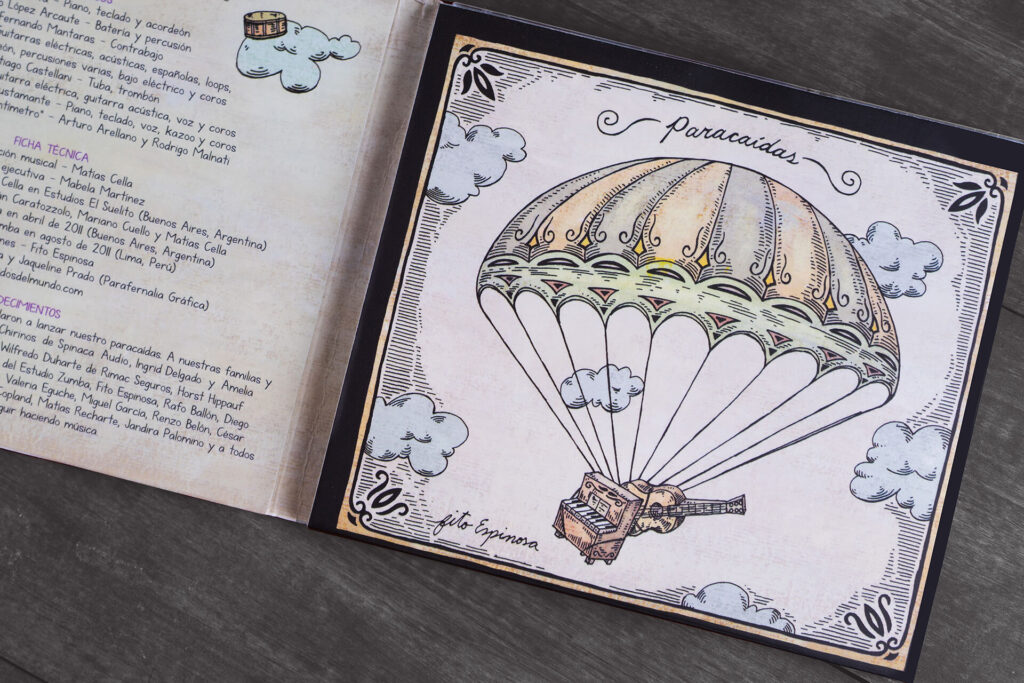 - Piano, teclado y acordeón
López Arcaute - Batería y percusión
Fernando Mantaras - Contrabajo
guitarras eléctricas, acústicas, españolas, loops,
percusiones varias, bajo eléctrico y coros
Castellani - Tuba, trombón
guitarra eléctrica, guitarra acústica, voz y coros
- Piano, teclado, voz, kazoo y coros
- Arturo Arellano y Rodrigo Malnati
FICHA TÉCNICA
musical - Matías Cella
ejecutiva - Mabela Martínez
Cella en Estudios El Suelito (Buenos Aires, Argentina)
Caratozzolo, Mariano Cuello y Matías Cella
en abril de 2011 (Buenos Aires, Argentina)
en agosto de 2011 (Lima, Perú)
- Fito Espinosa
y Jaqueline Prado (Parafernalia Gráfica)
a lanzar nuestro paracaídas. A nuestras familias y
Chirinos de Spinaca Audio, Ingrid Delgado y Amelia
Wilfredo Duharte de Rimac Seguros, Horst Hippauf
del Estudio Zumba, Fito Espinosa, Rafo Ballón, Diego
Valeria Eguche, Miguel García, Renzo Belón, César
Copland, Matías Recharte, Jandira Palomino y a todos
seguir haciendo música.
Paracaídas
fito Espinosa